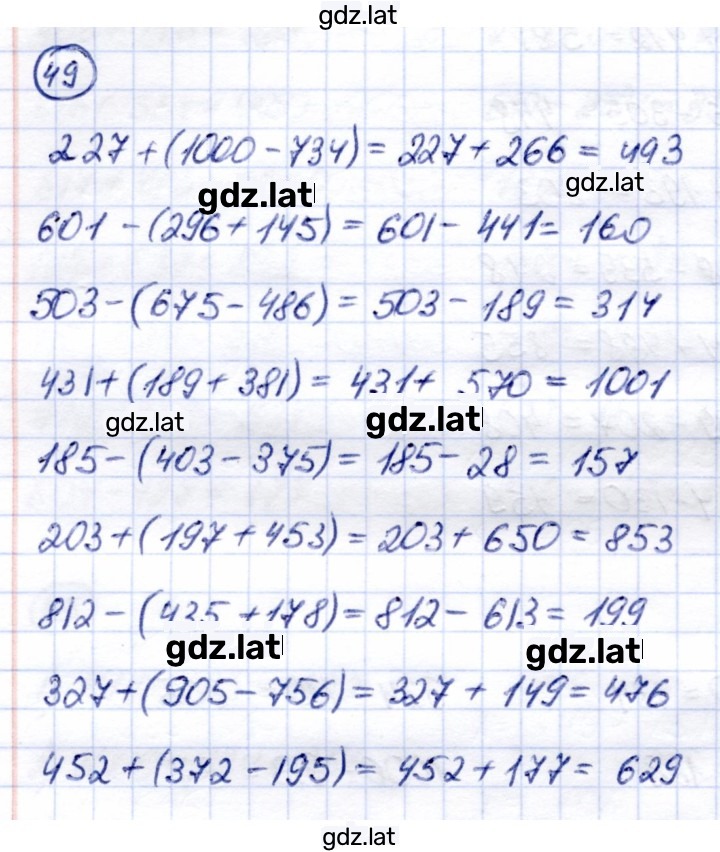 gdz.lat
49
227+(1000-734)=227+266=493
gdz.lat
gdz.lat
601-(296+145)=601-441=160
503-(675-486)=503-189=314
431+(189+381)=431+570=1001
gdz.lat
gdz.lat
185-(403-375)=185-28=157
203+(197+453)=203+650=853
812-(435+178)=812-613=199
gdz.lat
gdz.lat
327+(905-756)=327+149=476
452+(372-195)=452+177=629
gdz.lat